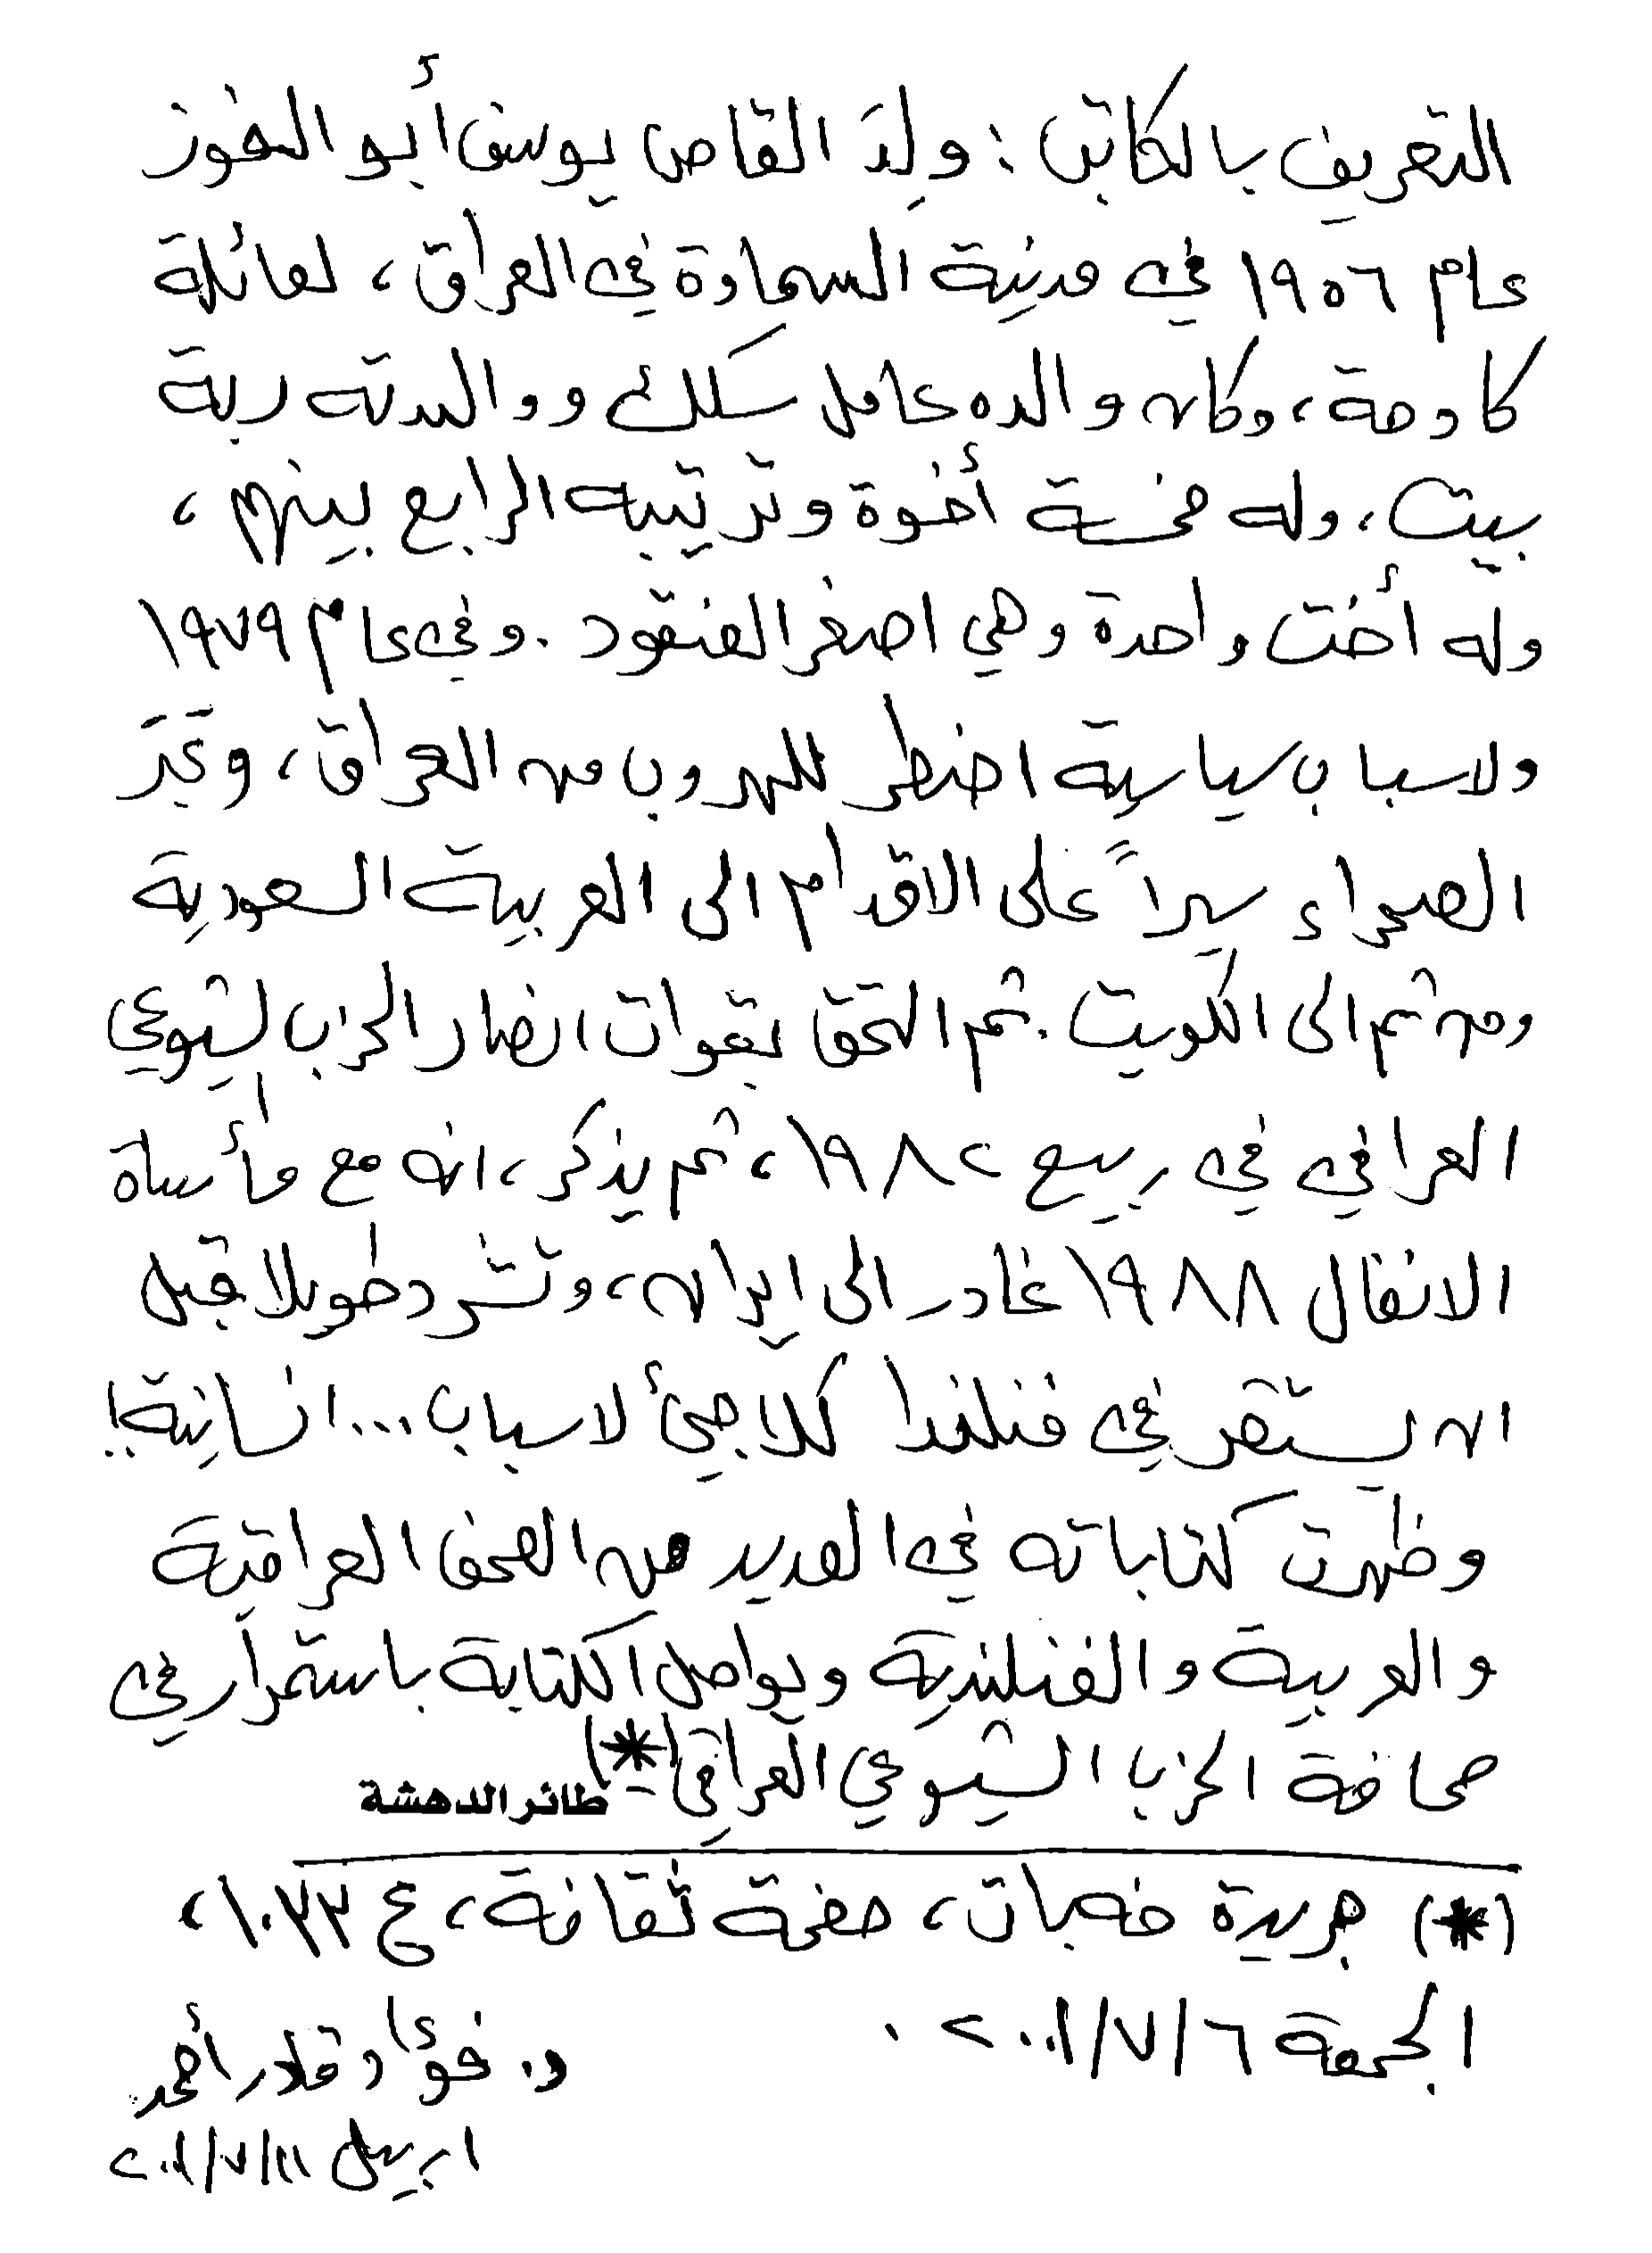 التعريف بالكاتب : ولِدَ القاص يوسف أبو الفوز
عام ١٩٥٦ في مدينة السماوة في العراق ، لعائلة
كادحة ، وكان والده عامل سكك ووالدته ربة
بيت ، وله خمسة أخوة وترتيبه الرابع بينهم ،
وله أخت واحدة وهي اصغر العنقود . وفي عام ١٩٧٩
ولاسباب سياسية اضطر للهروب من العراق ، وعَبَرَ
الصحراء سيراً على الاقدام الى العربية السعودية
ومن ثم الى الكويت . ثم التحق بقوات انصار الحزب الشيوعي
العراقي في ربيع ١٩٨٢ ، ثم يذكر ، انه مع مأساة
الانفال ١٩٨٨ غادر الى ايران ، وتشرد طويلا قبل
ان يستقر في فنلندا كلاجئ لاسباب ... انسانية !
وظهرت كتاباته في العديد من الصحف العراقية
والعربية والفنلندية ويواصل الكتابة باستمرار في
صحافة الحزب الشيوعي العراقي (*)
طائر الدهشة
(*) جريدة خه بات ، صفحة ثقافة ، ع ١٠٣٣ ،
الجمعة ٢٠٠١/٧/٦ .
د. فؤاد قادر أحمد
اربيل ٢٠٠١/٧/١١